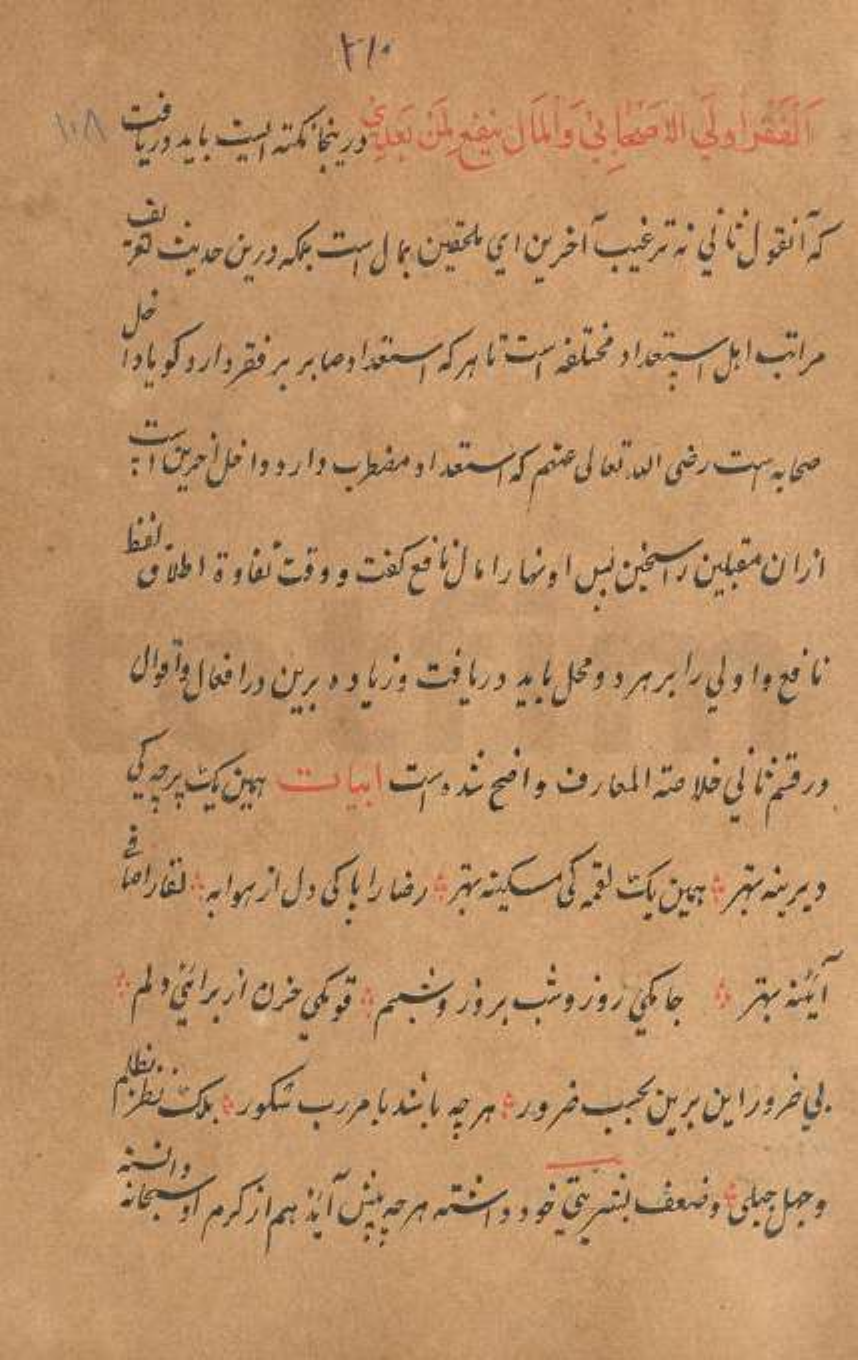 ٢١٠
اَلْفَقْرُ اَولَي الاَصْحَابِيْ وَالمَال ينفع لِمَنْ بَعْدِيْ درینجا نکته ایست باید دریافت ١٠٨
که آنقول ثانی نه ترغیب آخرین ای ملحقین بمال است بلکه درین حدیث تعریف
مراتب اهل استعداد مختلفه است تا هر که استعداد صابر بر فقر دارد کویا داخل
صحابه است رضی الله تعالی عنهم که استعداد مضطرب دارد داخل آخرین است
ازان مقبلین راسخین پس اونها را مال نافع کفت و وقت تفاوة اطلاق لفظ
نافع و اولی را بر هر دو محل باید دریافت و زیاده برین در افعال و اقوال
ثانی خلاصته المعارف واضح شده است ابیات همین یک پرچه کی
دیرینه بهتر همین یک لقمه کی مسکینه بهتر رضا را پاکی دل از هوا به لقا را صافی
آئینه بهتر جامکی روز و شب بروز و شبم قوتکی خزن از برائی دلم
بی ضرور این برین بحسب ضرور هر چه باشد بامر رب شکور بلک نظر بر ظلم
و جهل جبلی و ضعف بشریتی خود داشته هر چه پیش آید هم از کرم او سبحانه دانسته